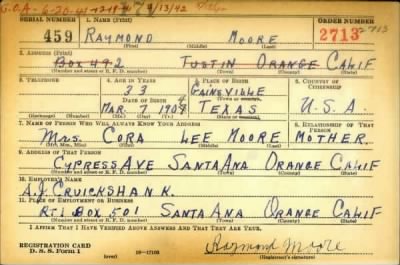 C.O.A. 6-20-41
SERIAL NUMBER 1. NAME (Print) ORDER NUMBER
459 RAYMOND MOORE 2713
(First) (Middle) (Last)
2. ADDRESS (Print)
Box 492 TUSTIN ORANGE CALIF
(Number and street or R. F. D. number) (Town) (County) (State)
3. TELEPHONE 4. AGE IN YEARS 5. PLACE OF BIRTH 6. COUNTRY OF CITIZENSHIP
33 GAINSVILLE
DATE OF BIRTH
MAR 7 TEXAS U.S.A.
(Exchange) (Number) (Mo.) (Day) (Yr.) (State or country)
7. NAME OF PERSON WHO WILL ALWAYS KNOW YOUR ADDRESS 8. RELATIONSHIP OF THAT PERSON
MRS. CORA LEE MOORE MOTHER.
(Mr., Mrs., Miss) (First) (Middle) (Last)
9. ADDRESS OF THAT PERSON
CYPRESS AVE SANTA ANA ORANGE CALIF
(Number and street or R. F. D. number) (Town) (County) (State)
10. EMPLOYER'S NAME
A.J. CRUICKSHANK.
11. PLACE OF EMPLOYMENT OR BUSINESS
RT. 1 BOX 501 SANTA ANA ORANGE CALIF
(Number and street or R. F. D. number) (Town) (County) (State)
I AFFIRM THAT I HAVE VERIFIED ABOVE ANSWERS AND THAT THEY ARE TRUE.
REGISTRATION CARD
D. S. S. Form 1 (over) 16-17105 Raymond Moore
(Registrant's signature)